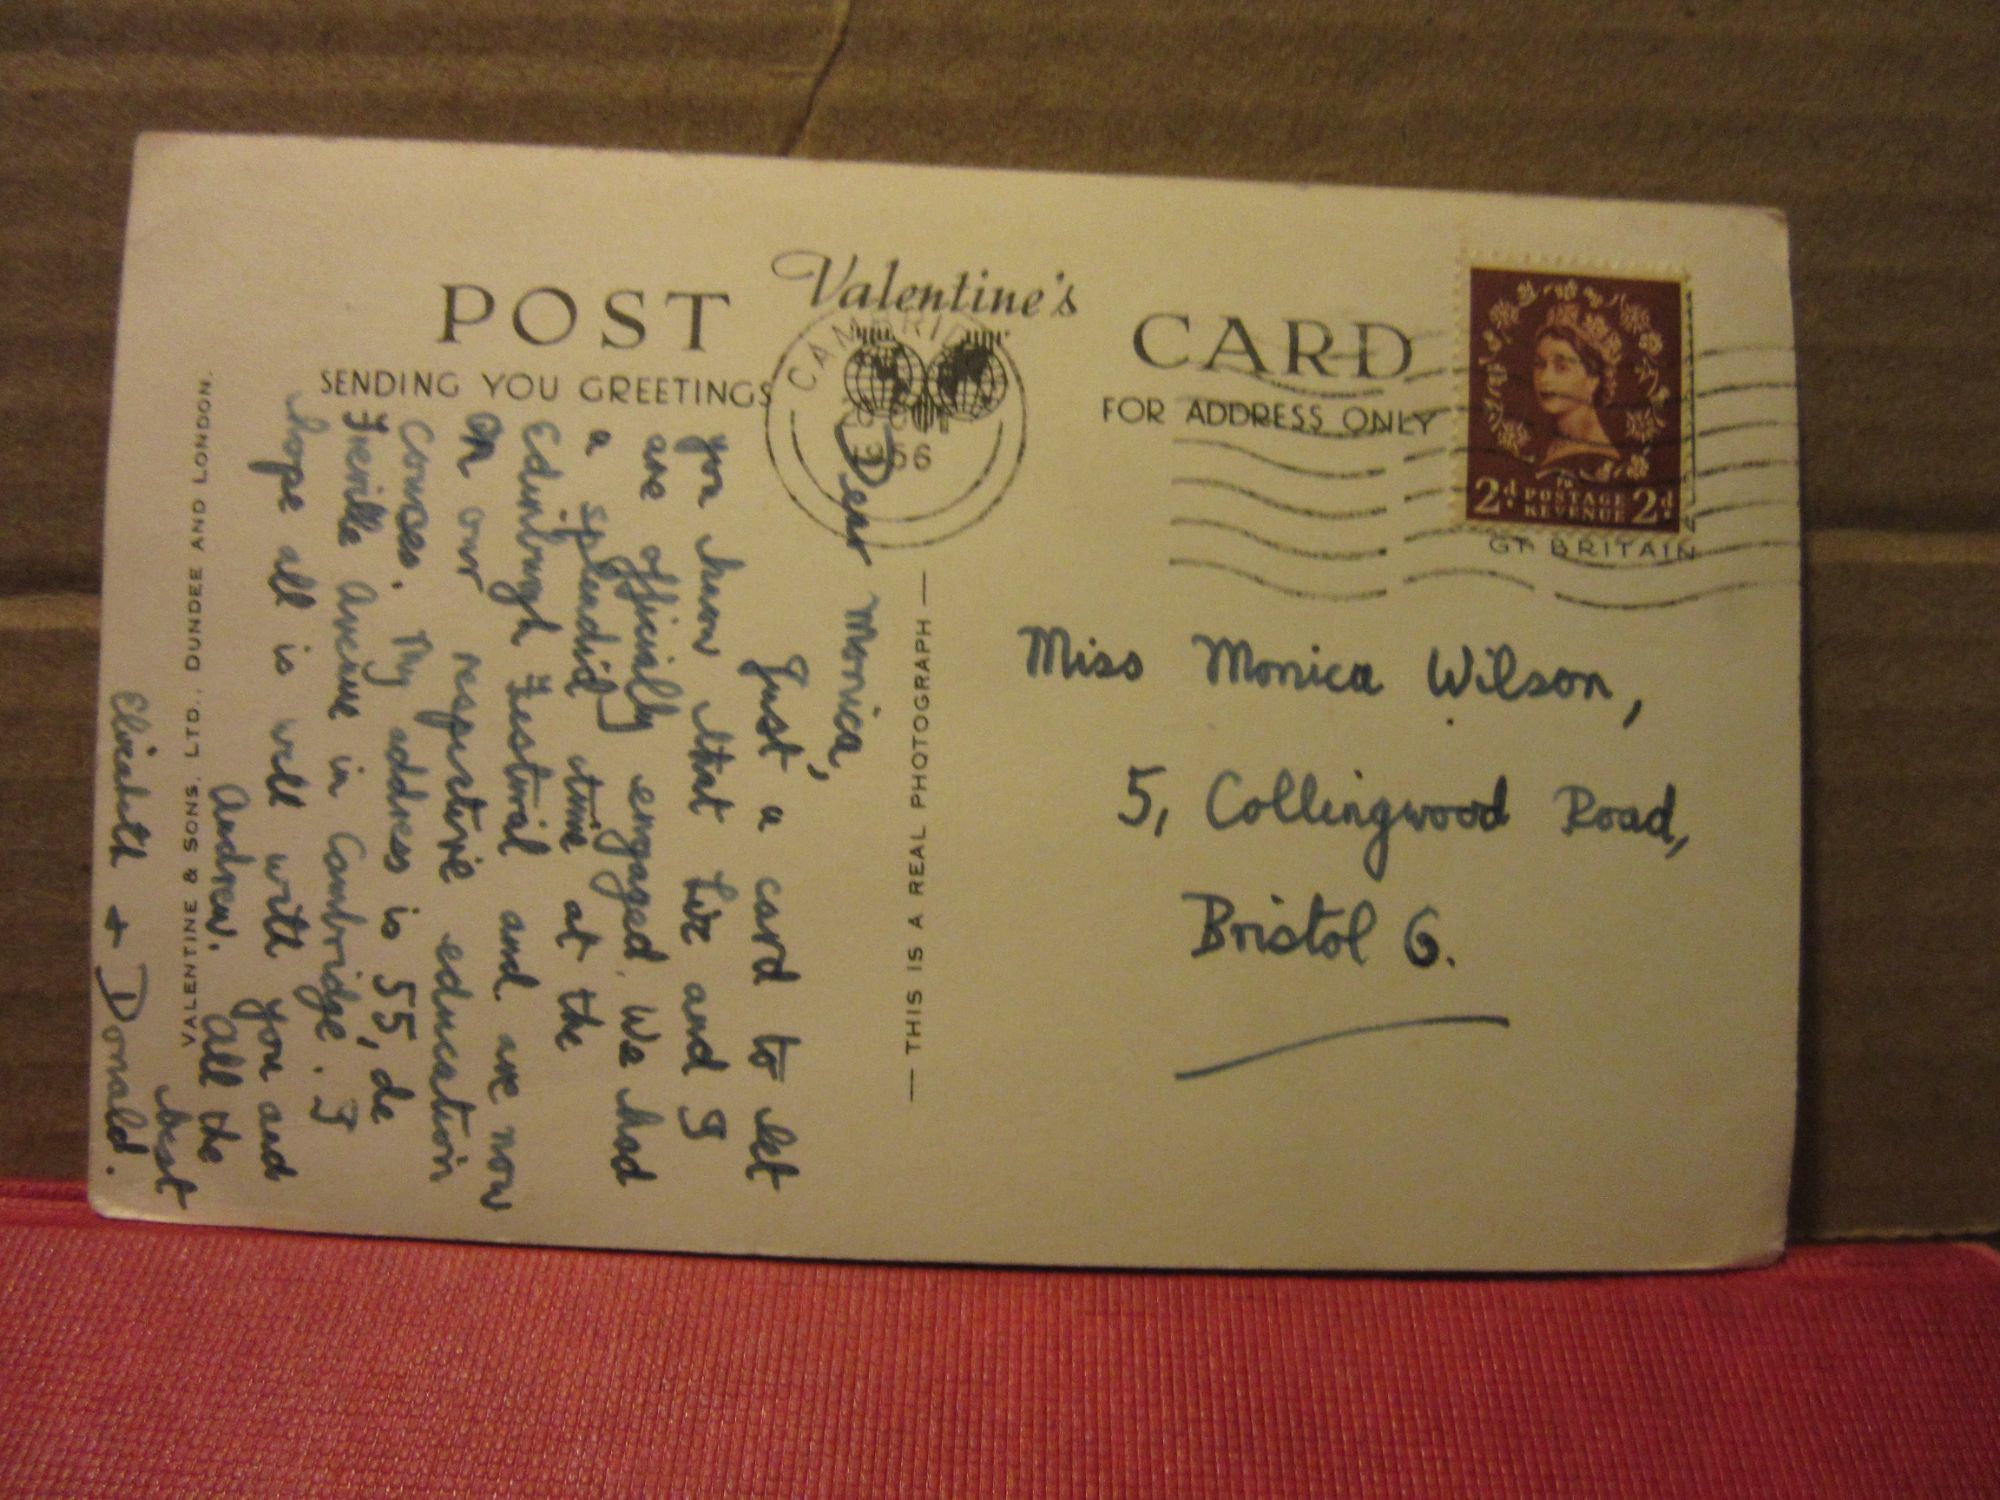 Valentine's
POST CARD
SENDING YOU GREETINGS
FOR ADDRESS ONLY
CAMBRIDGE
1956
2d POSTAGE 2d
REVENUE
GT BRITAIN
Dear Monica,
Just a card to let
you know that Liz and I
are officially engaged. We had
a splendid time at the
Edinburgh Festival and are now
on our respective education
courses. My address is 55, de
Freville Avenue in Cambridge. I
hope all is well with you and
Andrew. All the
best
Elizabeth + Donald.
VALENTINE & SONS. LTD., DUNDEE AND LONDON.
— THIS IS A REAL PHOTOGRAPH —
Miss Monica Wilson,
5, Collingwood Road,
Bristol 6.